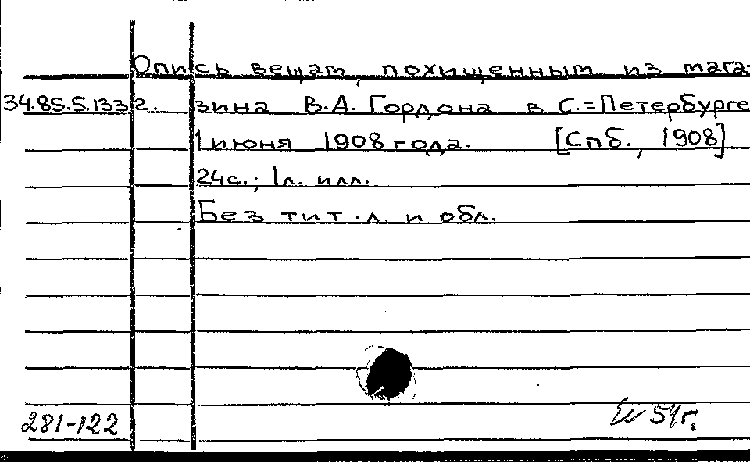 Опись вещам, похищенным из мага-
34.85.5.133 г. зина В.А. Гордона в С.=Петербурге
1 июня 1908 года. [Спб., 1908]
24с.; 1л. илл.
Без тит.л. и обл.
281-122
54г.